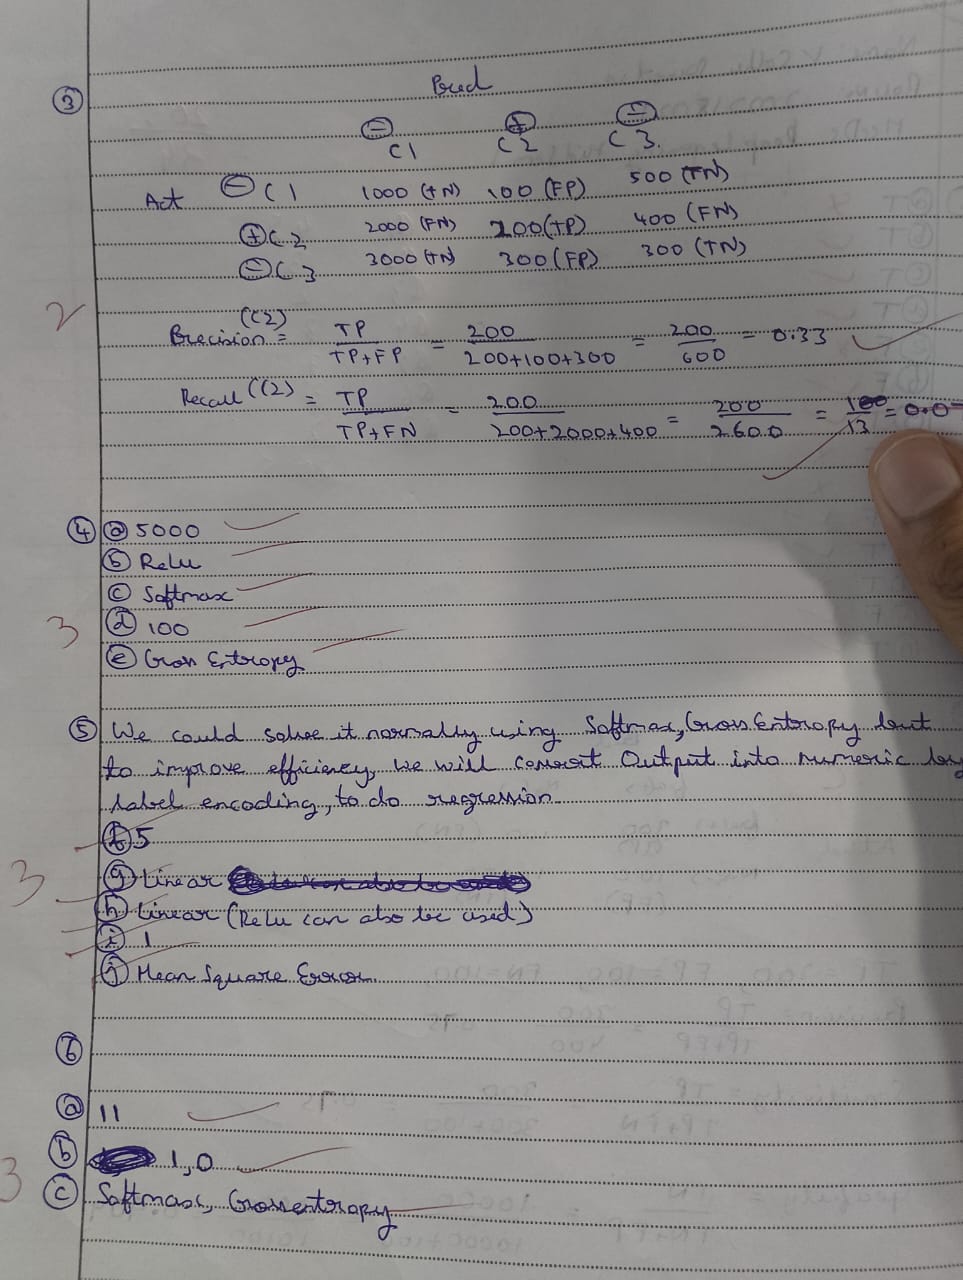 ③ Pred
⊖ ⊕ ⊖
C1 C2 C3.
Act ⊖ C1 1000 (TN) 100 (FP) 500 (TN)
⊕ C2 2000 (FN) 200 (TP) 400 (FN)
⊖ C3 3000 (TN) 300 (FP) 300 (TN)
2
Precision (C2) = TP / TP+FP = 200 / 200+100+300 = 200 / 600 = 0.33
Recall (C2) = TP / TP+FN = 200 / 200+2000+400 = 200 / 2600 = / 13 = 0.0
④ ⓐ 5000
ⓑ Relu
ⓒ Softmax
3 ⓓ 100
ⓔ Cross Entropy
⑤ We could solve it normally using Softmax, Cross Entropy but
to improve efficiency, we will convert Output into numeric by
label encoding, to do regression.
ⓕ 5
3 ⓖ Linear
ⓗ Linear (Relu can also be used)
ⓘ 1
ⓙ Mean Square Error.
⑥
ⓐ 11
ⓑ 1,0
3 ⓒ Softmax, Cross entropy